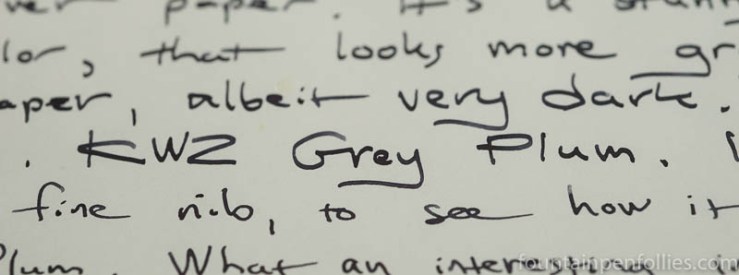 paper. It's a
lor, that looks more gr
aper, albeit very dark.
. KWZ Grey Plum.
fine nib, to see how it
Plum. What an
fountainpenfollies.com